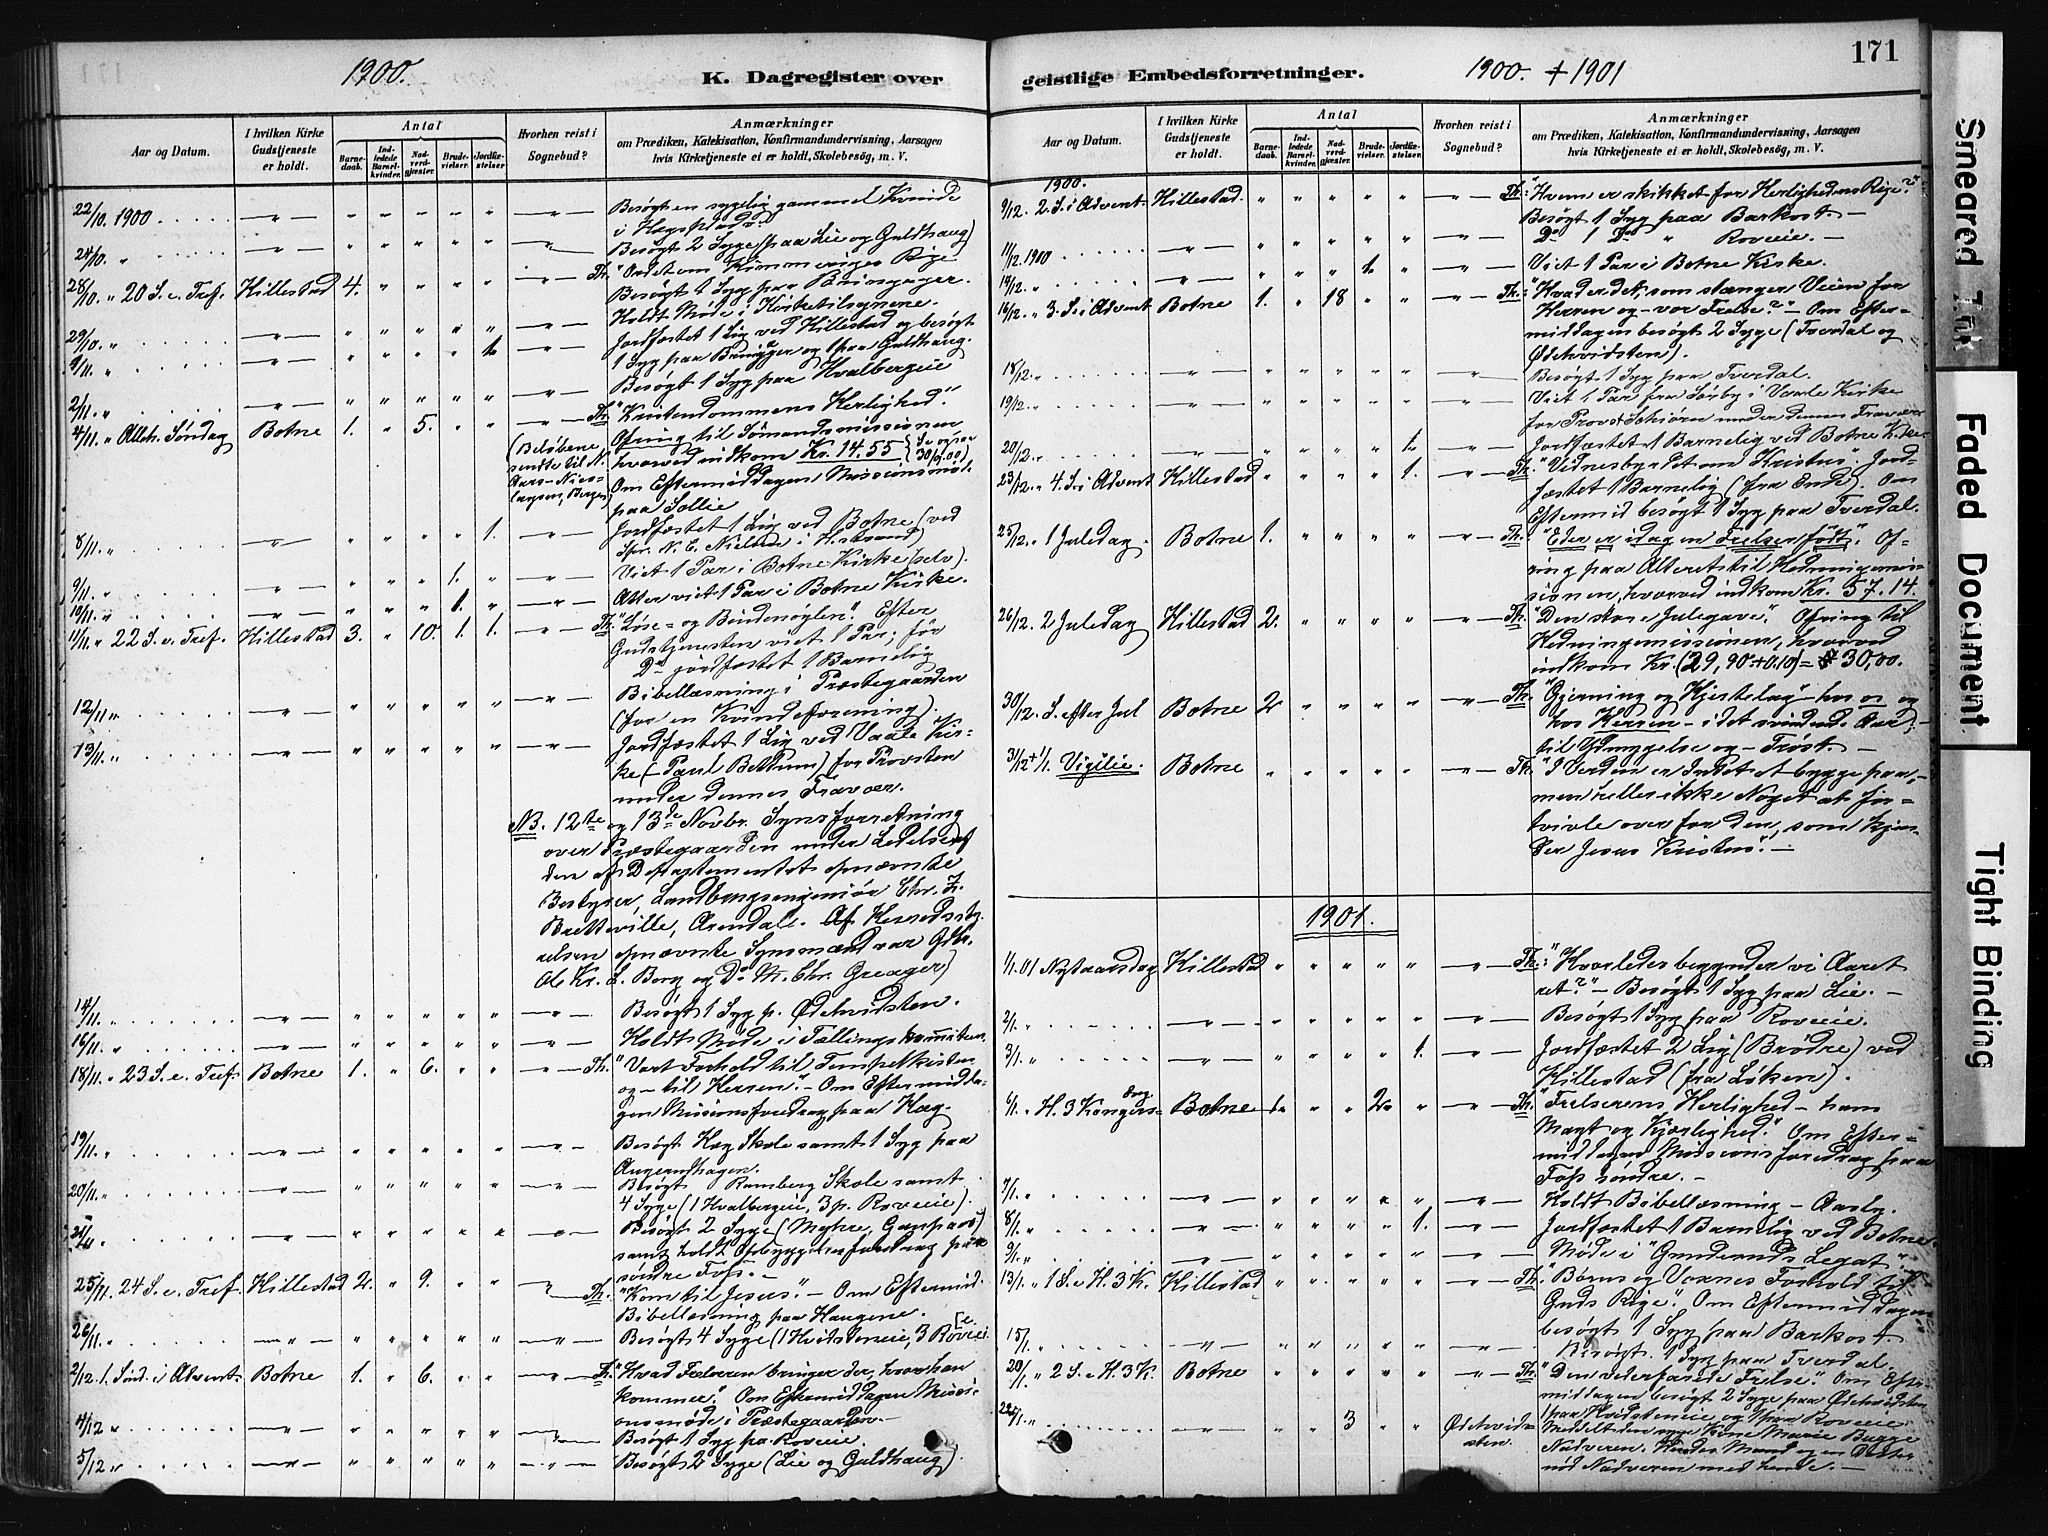 1900.
K. Dagregister over
geistlige Embedsforretninger.
1900. + 1901
171
Aar og Datum.
I hvilken Kirke Gudstjeneste er holdt.
Antal
Barnedaab.
Indledede Barselkvinder.
Nadverdgjæster.
Brudevielser.
Jordfæstelser.
Hvorhen reist i Sognebud?
Anmærkninger
om Prædiken, Katekisation, Konfirmandundervisning, Aarsagen
hvis Kirketjeneste ei er holdt, Skolebesøg, m. V.
22/10 1900 Besøgt en sygelig gammel Kvinde
24/10 " Besøgt 2 Syge (paa Lie og Guldhaug)
28/10 " 20 S. e. Tref. Hillestad 4. Th. "Ordet om Himmeriges Rige"
Besøgt 1 Syg paa
Holdt Møde i Kirketilsynene.
29/10 "
Jordfæstet 1 Lig ved Hillestad og besøgt
1 Syg paa og 1 paa Guldhaug.
Besøgt 1 Syg paa Hvalbergeie
2/11 "
4/11 " Alleh. Søndag Botne 1. " 5. Th. "Kristendommens Herlighed."
(Beløbene Ofring til Sømandsmissionen
sendte til hvorved indkom Kr. 14.55
Om Eftermiddagen Missionsmøde
paa Sollie
8/11 " 1. Jordfæstet 1 Lig ved Botne (ved
9/11 " 1. Viet 1 Par i Botne Kirke (selv).
10/11 " 1. Atter viet 1 Par i Botne Kirke.
11/11 " 22 S. e. Tref. Hillestad 3. " 10. 1. 1. Th. "Løse- og Bindenøglen." Efter
Gudstjenesten viet 1 Par; før
Do jordfæstet 1 Barnelig
12/11 " Bibellæsning i Præstegaarden
(for en Kvindeforening).
13/11 " Jordfæstet 1 Lig ved Vaale Kir-
ke (- Paul Bettum) for Provsten
under dennes Fravær.
NB. 12te og 13de Novbr. Synsforretning
over Præstegaarden under Ledelse af
den af Departementet opnævnte
Bestyrer, Landbrugsingeniør Chr. Z.
Bretteville, Arendal. Af Herredssty-
relsen opnævnte Synsmænd var Gdbr.
Ole Kr. L. Berg og Do M. Chr. Greager)
14/11 " Besøgt 1 Syg p. Ødehvidsten.
16/11 " Holdt Møde i Tællingskomiteen.
18/11 " 23 S. e. Tref. Botne 1. " 6. Th. "Vort Forhold til Tempelkisten
og - til Herren." - Om Eftermidda-
gen Missionsforedrag paa Hæg.
19/11 " Besøgt Hæg Skole samt 1 Syg paa
Angerushagen.
20/11 " Besøgt Ramberg Skole samt
4 Syge (1 Hvalbergeie, 3 p. Roveie).
21/11 " Besøgt 2 Syge (Myhre, Gaspaas)
samt holdt Opbyggelsesforedrag paa
søndre Foss.
25/11. 24 S. e. Tref. Hillestad 2. " 9. Th. "Kom til Jesus". - Om Eftermid.
Bibellæsning paa Haugene.
26/11 " Besøgt 4 Syge (1 Hvitsteneie, 3 Roveie.
2/12. 1. Sønd. i Advent Botne 1. " 6. Th. "Hvad Frelseren bringer der, hvor han
kommer." Om Eftermiddagen Missi-
onsmøde i Præstegaarden.
4/12 " Besøgt 1 Syg paa Roveie.
5/12 " Besøgt 2 Syge (Lie og Guldhaug)
Aar og Datum.
I hvilken Kirke Gudstjeneste er holdt.
Antal
Barnedaab.
Indledede Barselkvinder.
Nadverdgjæster.
Brudevielser.
Jordfæstelser.
Hvorhen reist i Sognebud?
Anmærkninger
om Prædiken, Katekisation, Konfirmandundervisning, Aarsagen
hvis Kirketjeneste ei er holdt, Skolebesøg, m. V.
1900.
9/12. 2. S. i Advent Hillestad. Th: "Hvem er skikket for Herlighedens Rige?"
Besøgt 1 Syg paa Barkost. -
11/12 1900 Do 1 Do " Roveie. -
14/12. " 1. Viet 1 Par i Botne Kirke.
16/12. " 3. S. i Advent Botne 1. " 18 Th: "Hvad er det, som stænger Veien for
Herren og - vor Frelse?" - Om Efter-
middagen besøgt 2 Syge (Tverdal og
Ødehvidsten).
18/12. " Besøgt 1 Syg paa Tverdal.
19/12. " Viet 1 Par fra Sørby i Vaale Kirke
for Provst Schiørn under dennes Fravær
20/12. " 1. Jordfæstet 1 Barnelig ved Botne Kirke.
23/12. " 4. S. i Advent Hillestad 1. Th: "Vidnesbyrdet om Kristus". Jord-
fæstet 1 Barnelig (fra ). Om
Eftermid besøgt 1 Syg paa Tverdal.
25/12. " 1 Juledag. Botne 1. Th: "Eder er idag en Frelser født". Of-
ring paa Alteret til Hedningemis-
sionen, hvorved indkom Kr. 57.14.
26/12. 2 Juledag Hillestad 2. Th: "Den store Julegave." Ofring til
Hedningemissionen, hvorved
indkom Kr. (29,90 + 0.10) = 30,00.
30/12. S. efter Jul Botne 2 Th: "Gjerning og Hjertelag" - hos os og
hos Herren - i det svindende Aar;
til Ydmygelse og - Trøst. -
31/12 + 1/1. Vigilie. Botne Th: "I Verden er Intet at bygge paa, -
men heller ikke Noget at for-
tvivle over for den, som kjen-
der Jesus Kristus." -
1901.
1/1. 01 Nytaarsdag Hillestad Th: "Hvorledes begynder vi Aaret
ret?" - Besøgt 1 Syg paa Lie. -
2/1. " Besøgt 1 Syg paa Roveie.
3/1. " 1. Jordfæstet 2 Lig (Brødre) ved
Hillestad (fra Løken).
6/1. " H. 3 Kongers dag Botne 1. 2. Th: "Frelserens Herlighed - hans
Magt og Kjærlighed." Om Efter-
middagen Missionsforedrag paa
Foss søndre. -
7/1. " Holdt Bibellæsning - Aasby.
8/1. " 1. Jordfæstet 1 Barnelig ved Botne
9/1. " Møde i "Gunderuds Legat".
13/1. " 1 S. e. H. 3 K. Hillestad Th: "Børns og Voxnes Forhold til
Guds Rige." Om Eftermiddagen
besøgt 1 Syg paa Barkost.
15/1. " Besøgt 1 Syg paa Tverdal.
20/1. " 2 S. e. H. 3 K. Botne Th: "Den vederfarede Frelse." Om Efter
middagen besøgt 2 Syge paa Ødehvidsten
1 paa Hvidsteneie og 1 paa Roveie.
3 Ødehvid-
sten. Meddelt den syge Kone Marie Bugge
Nadveren. Hendes Mand og en Datter
nød Nadveren med hende. -
Smeared Ink
Faded Document
Tight Binding